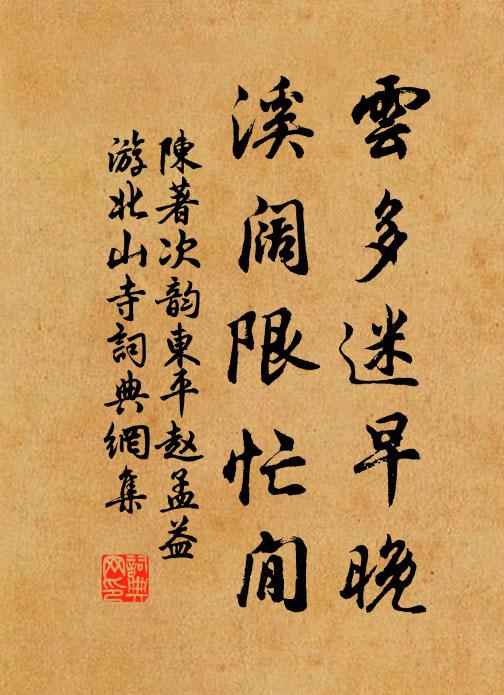 雲多迷早晚
溪阔限忙閒
陳著次韵東平赵孟益
游北山寺詞典網集
詞典网印